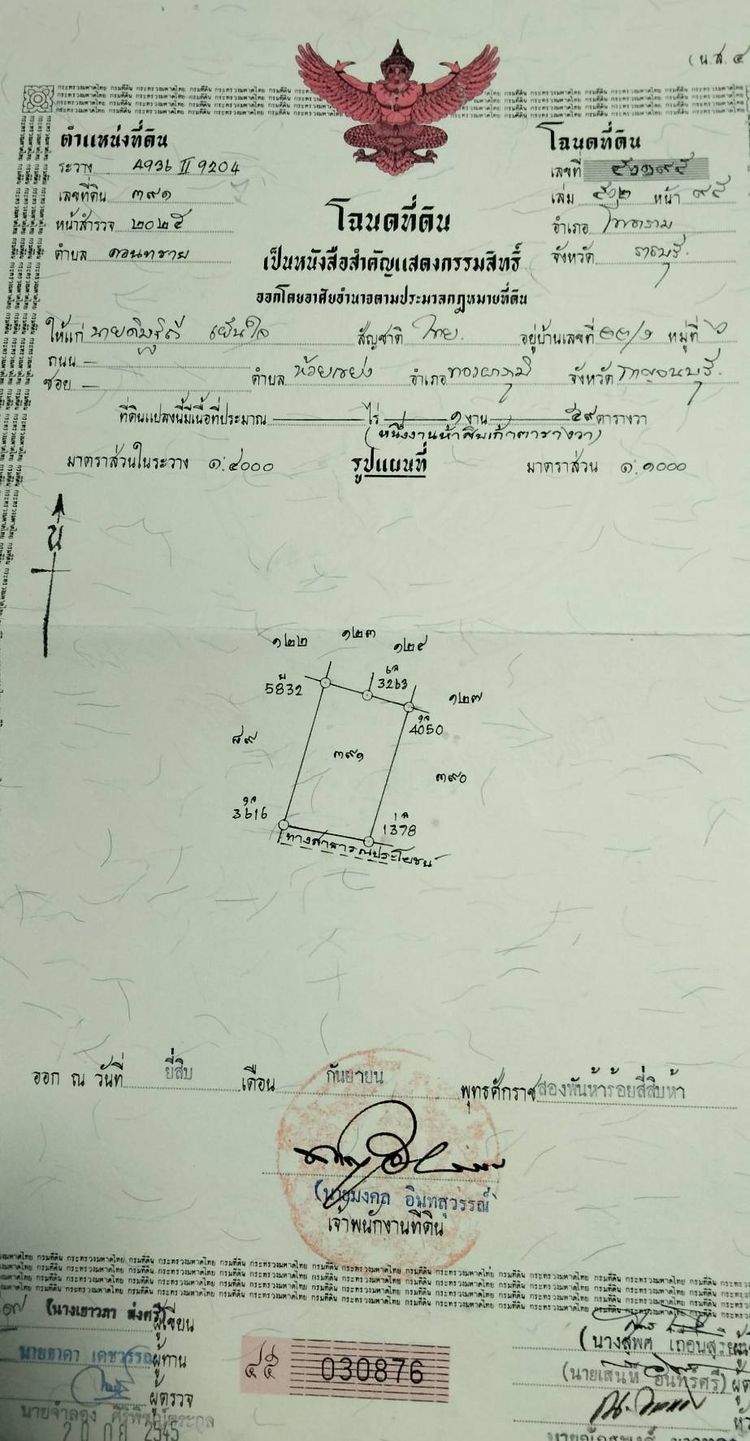 (น.ส. ๔
ตำแหน่งที่ดิน
ระวาง A936 II 9204
เลขที่ดิน ๓๙๑
หน้าสำรวจ ๒๐๒๕
ตำบล ดอนทราย
โฉนดที่ดิน
เลขที่
เล่ม ๕๑๒ หน้า ๙๕
อำเภอ โพธาราม
จังหวัด ราชบุรี
โฉนดที่ดิน
เป็นหนังสือสำคัญแสดงกรรมสิทธิ์
ออกโดยอาศัยอำนาจตามประมวลกฎหมายที่ดิน
ให้แก่ สัญชาติ ไทย อยู่บ้านเลขที่ หมู่ที่
ถนน —
ซอย — ตำบล ห้วยเขย่ง อำเภอ ทองผาภูมิ จังหวัด กาญจนบุรี
ที่ดินแปลงนี้มีเนื้อที่ประมาณ — ไร่ ๑ งาน ๕๙ ตารางวา
(หนึ่งงานห้าสิบเก้าตารางวา)
มาตราส่วนในระวาง ๑:๔๐๐๐ รูปแผนที่ มาตราส่วน ๑:๑๐๐๐
น
๑๒๒ ๑๒๓ ๑๒๔
5832 3263
๑๒๗
4050
๘๙ ๓๙๑ ๓๙๐
3616 1378
ทางสาธารณประโยชน์
ออก ณ วันที่ ยี่สิบ เดือน กันยายน พุทธศักราช สองพันห้าร้อยสี่สิบห้า
(นายมงคล อินทสุวรรณ์)
เจ้าพนักงานที่ดิน
(นางเยาวภา ผู้เขียน
ผู้ทาน
ผู้ตรวจ
นายจำลอง
20 กย 2545
๔๕ 030876
(นายเสน่ห์ อินทร์ศรี)